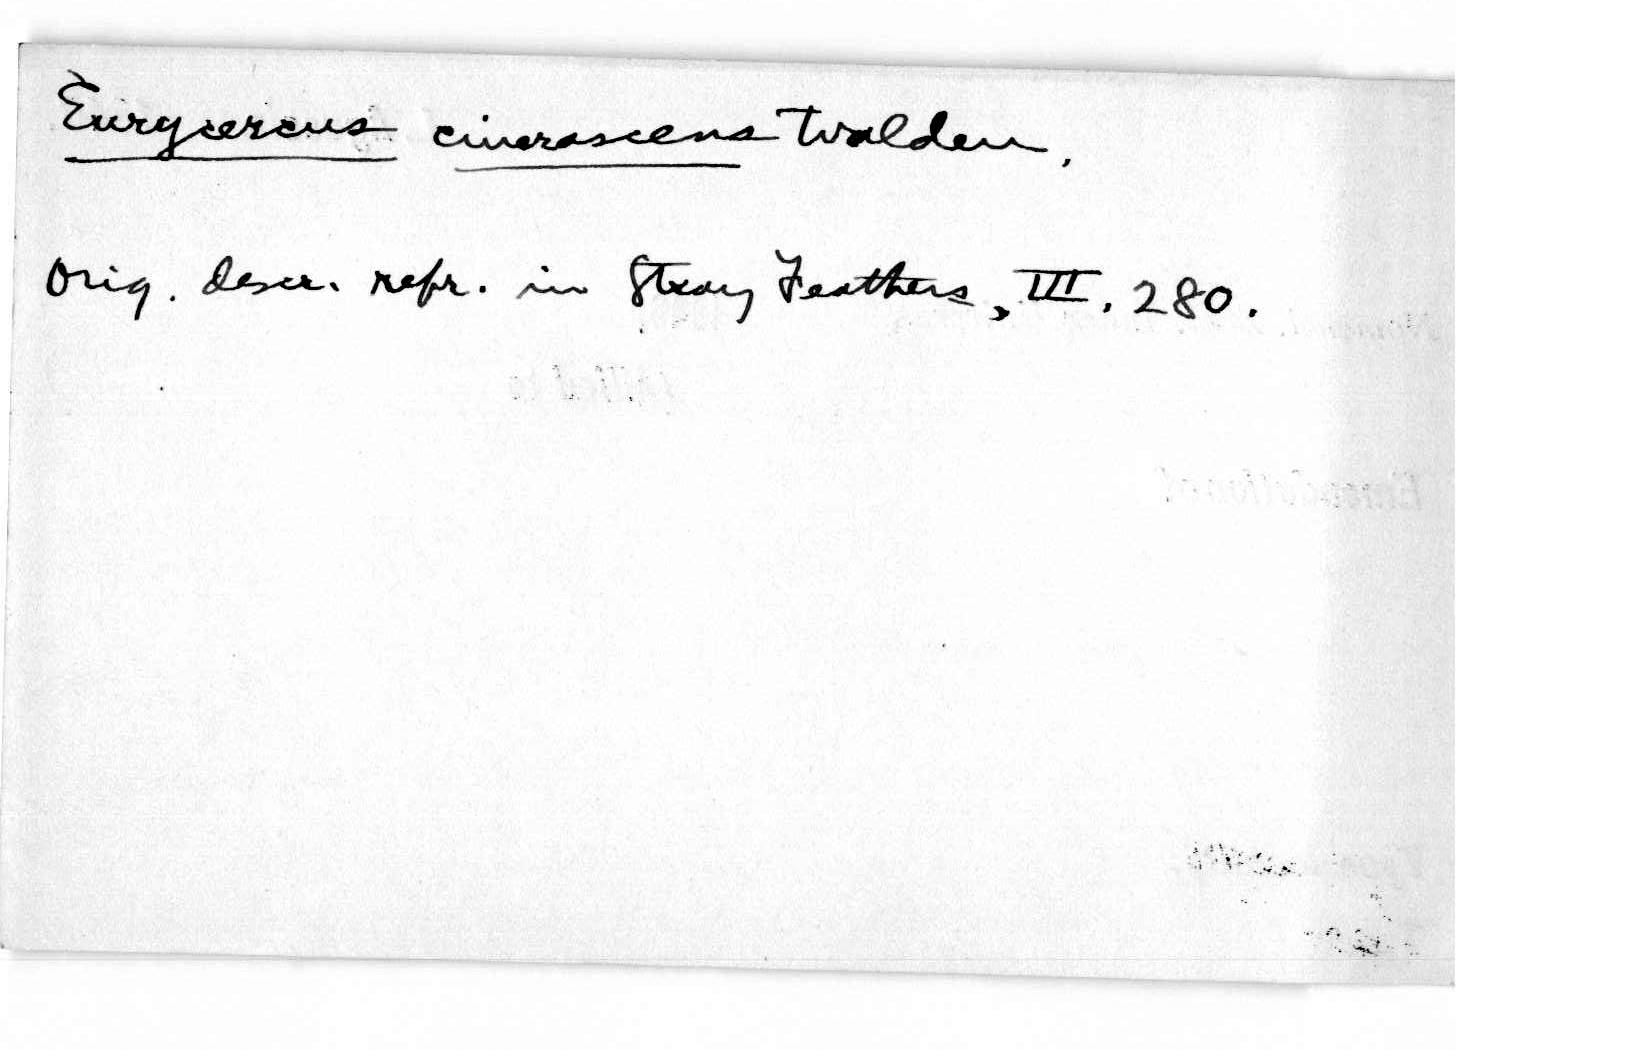 Eurycercus cinerascens Walden.
Orig. descr. repr. in Stray Feathers, III. 280.